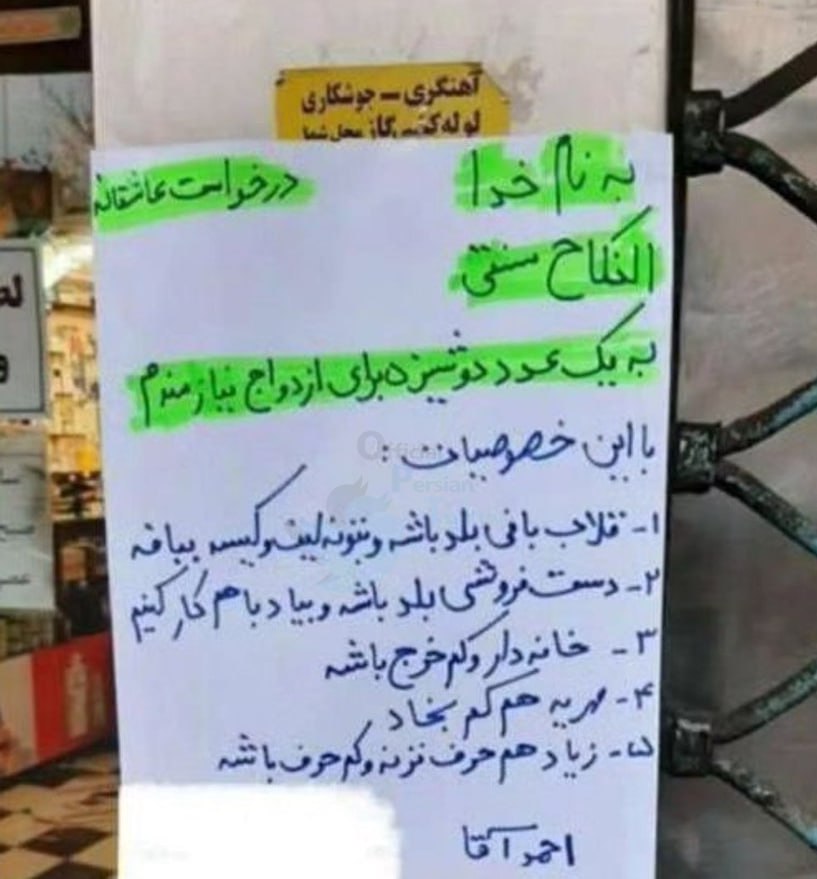 آهنگری – جوشکاری
لوله کشی گاز محل شما
به نام خدا
درخواست عاشقانه
النکاح سنتی
به یک عدد دوشیزه برای ازدواج نیازمندم
با این خصوصیات :
۱- قلاب بافی بلد باشه و بتونه لیف و کیسه ببافه
۲- دست فروشی بلد باشه و بیاد باهم کار کنیم
۳- خانه دار و کم خرج باشه
۴- مهریه هم کم بخاد
۵- زیاد هم حرف نزنه و کم حرف باشه
احمد آقا
Official
Persian